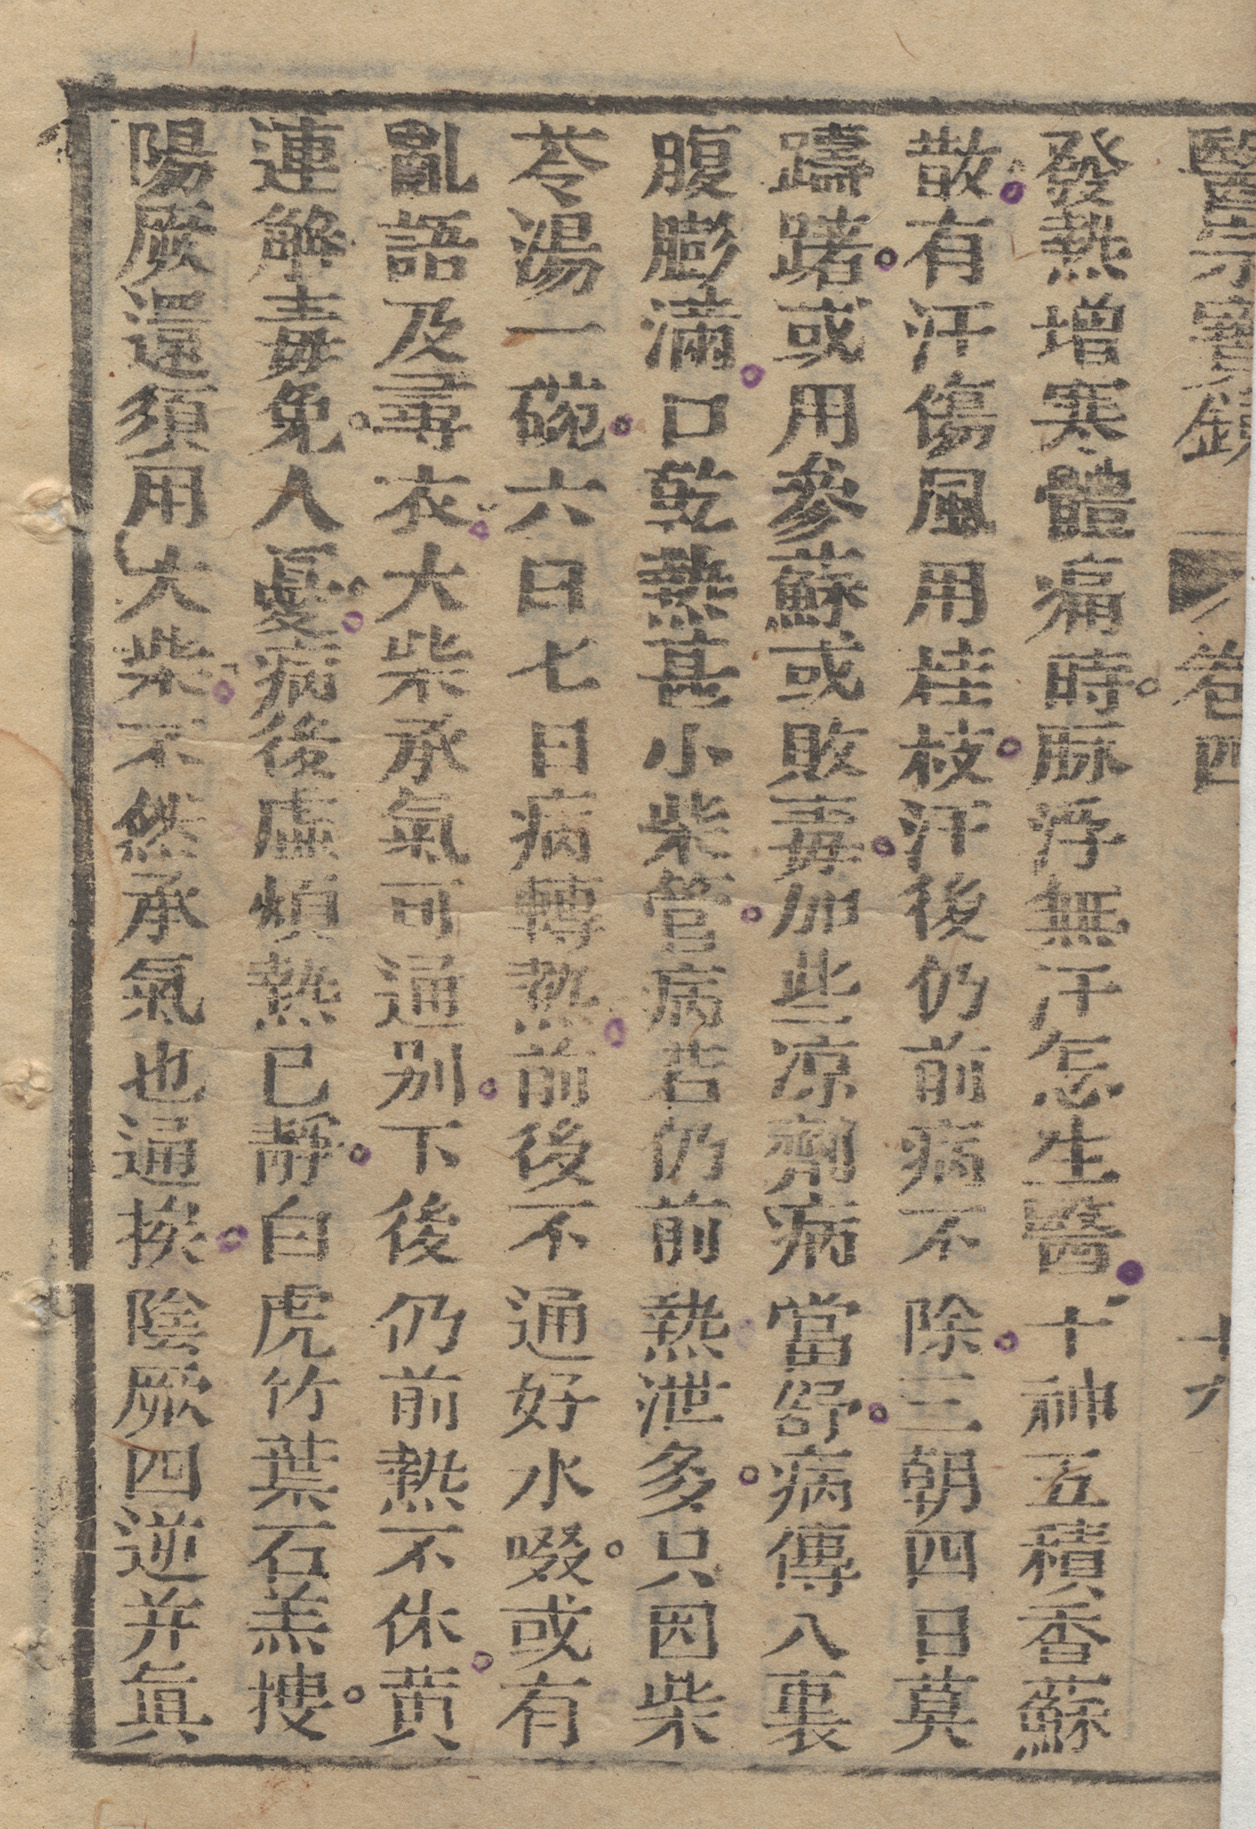 醫宗寶鏡 卷四 十九
發熱增寒體痛時脉浮無汗怎生醫十神五積香蘇
散有汗傷風用桂枝汗後仍前病不除三朝四日莫
躊躇或用參蘇或敗毒加些凉劑病當舒病傳入裏
腹膨滿口乾熱甚小柴管病若仍前熱泄多只因柴
苓湯一碗六日七日病轉熱前後不通好水啜或有
亂語及尋衣大柴承氣可通別下後仍前熱不休黃
連解毒免人憂病後虛煩熱已靜白虎竹葉石羔搜
陽厥還須用大柴不然承氣也通挨陰厥四逆并眞